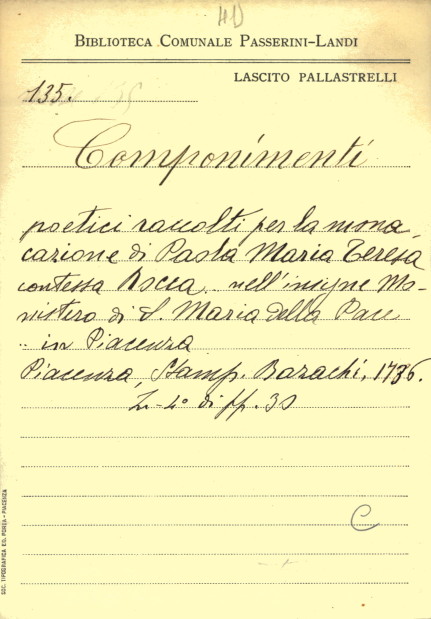 BIBLIOTECA COMUNALE PASSERINI-LANDI
LASCITO PALLASTRELLI
135.
Componimenti
poetici raccolti per la mona
cazione di Paola Maria Teresa
contessa Rocca .. nell'insigne Mo-
nistero di S. Maria della Pace
.. in Piacenza
Piacenza, Stamp. Bazachi, 1736.
In 4° di pp.
C
SOC. TIPOGRAFICA ED. PORTA - PIACENZA